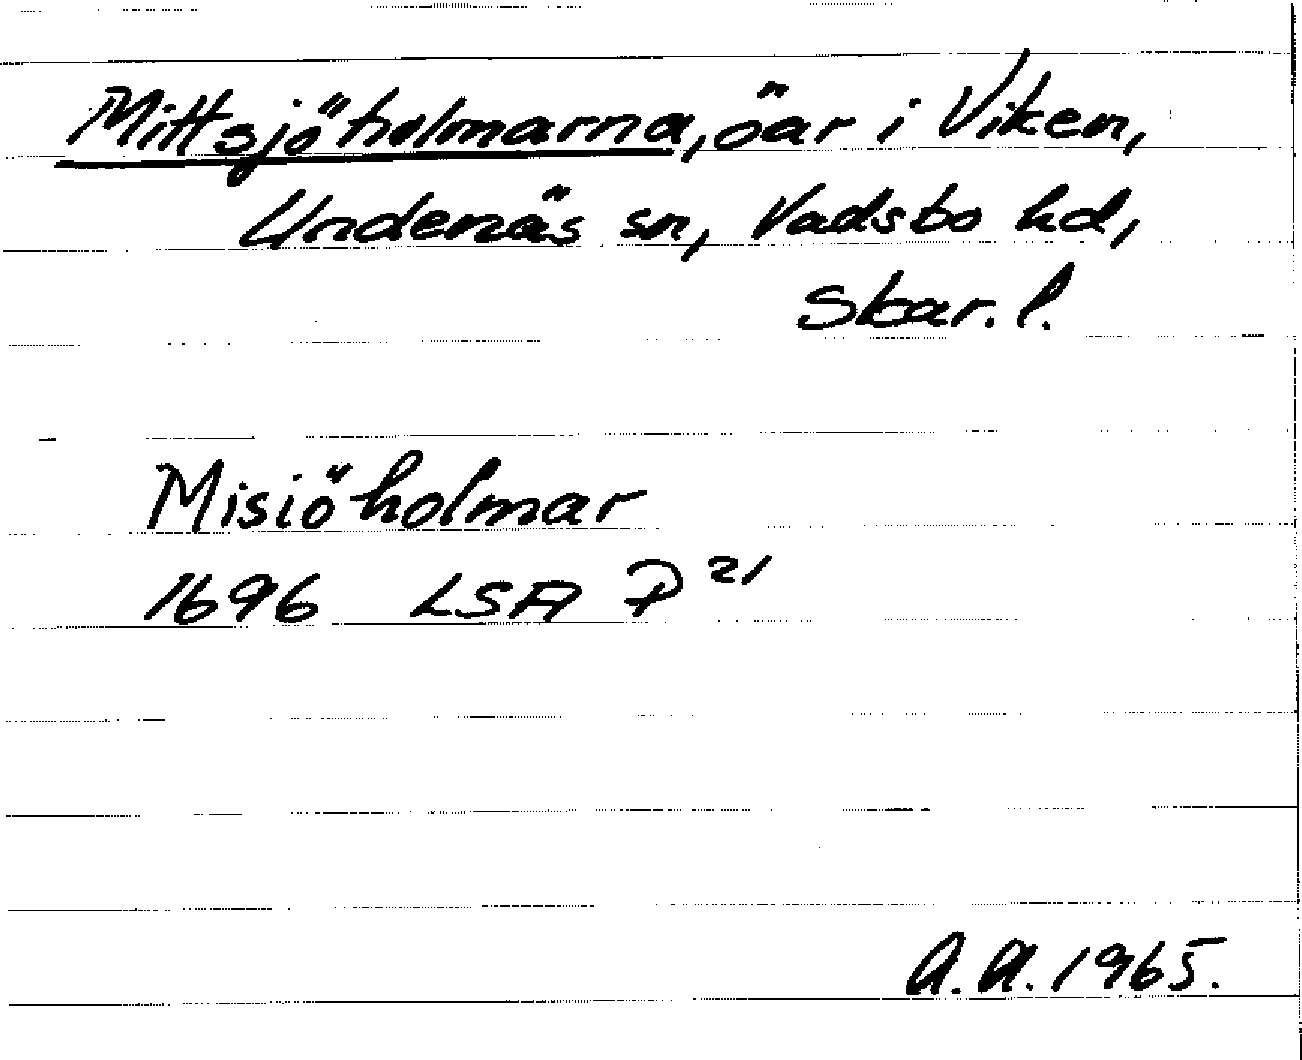 Mittsjöholmarna, öar i Viken,
Undenäs sn, Vadsbo hd,
Skar. l.
Misiöholmar
1696 LSA P 21
A.A. 1965.